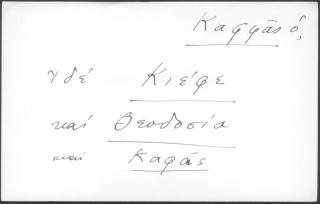 Καφφᾶς ὁ,
ἰδέ Κιέφε
καί Θεοδοσία
και Καφάς